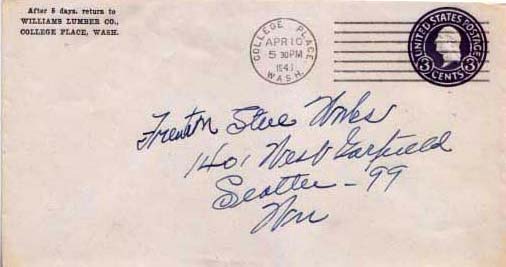 After 5 days, return to
WILLIAMS LUMBER CO.,
COLLEGE PLACE, WASH.
COLLEGE PLACE
APR 10
5 30 PM
1941
WASH.
UNITED STATES POSTAGE
3 CENTS 3
Works
1401 West Garfield
Seattle - 99
Wn